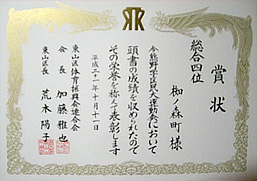 賞状
総合四位
栂ノ森町様
今熊野学区民大運動会において
頭書の成績を収められたので
その栄誉を称えて表彰します
平成二十一年十月十一日
東山区体育振興会連合会
会長 加藤雅也
東山区長 荒木陽子